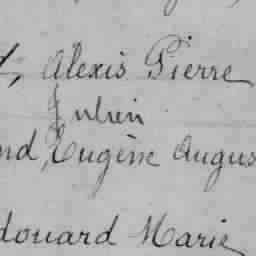 , Alexis Pierre
Julien
nd, Eugène Augus
douard Marie